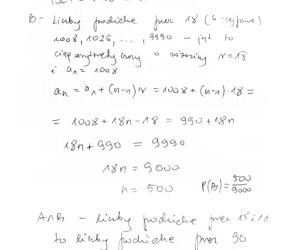 B - liczby podzielne przez 18 (4-cyfrowe)
1008, 1026, ..., 9990 - jest to
ciąg arytmetyczny o różnicy r = 18
i a₁ = 1008
aₙ = a₁ + (n-1) r = 1008 + (n-1) · 18 =
= 1008 + 18n - 18 = 990 + 18n
18n + 990 = 9990
18n = 9000
n = 500 P(B) = 500/9000
A∩B - liczby podzielne przez 15 i 18
to liczby podzielne przez 90